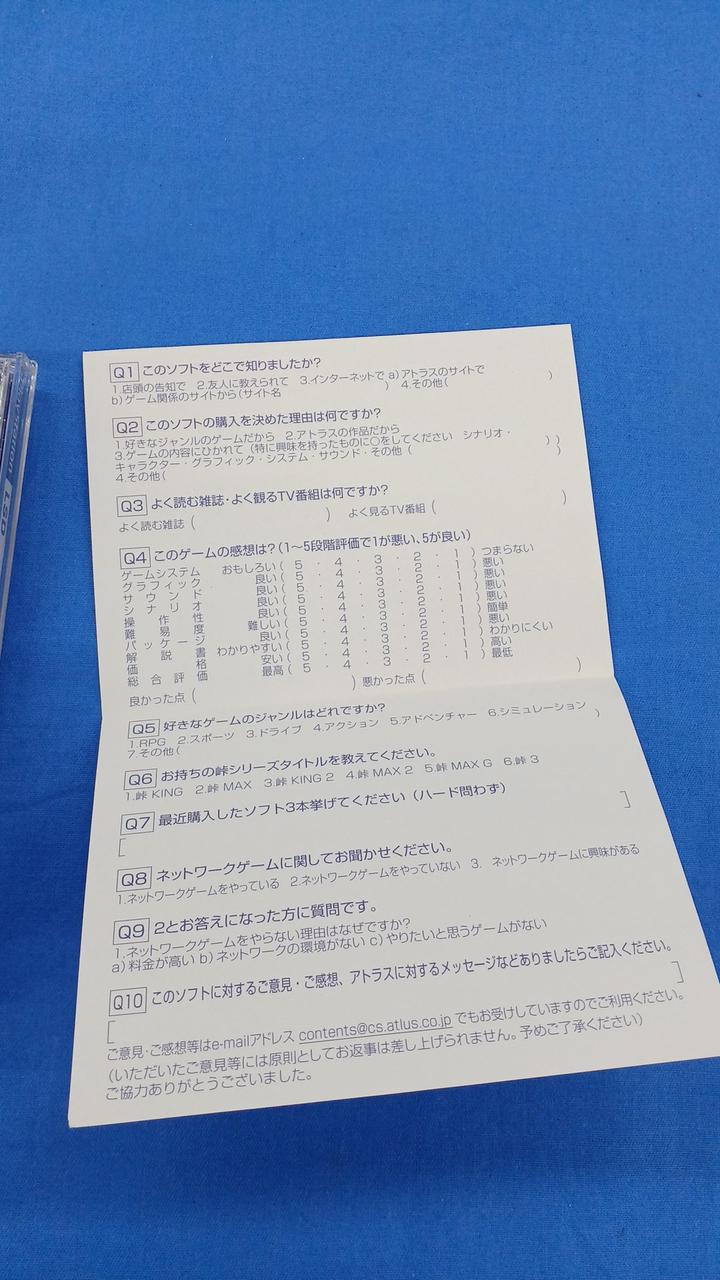 Q1 このソフトをどこで知りましたか?
1.店頭の告知で 2.友人に教えられて 3.インターネットで a)アトラスのサイトで
b)ゲーム関係のサイトから(サイト名 ) 4.その他( )
Q2 このソフトの購入を決めた理由は何ですか?
1.好きなジャンルのゲームだから 2.アトラスの作品だから
3.ゲームの内容にひかれて(特に興味を持ったものに○をしてください シナリオ・
キャラクター・グラフィック・システム・サウンド・その他( ))
4.その他( )
Q3 よく読む雑誌・よく観るTV番組は何ですか?
よく読む雑誌( ) よく見るTV番組( )
Q4 このゲームの感想は?(1〜5段階評価で1が悪い、5が良い)
ゲームシステム おもしろい( 5 ・ 4 ・ 3 ・ 2 ・ 1 )つまらない
グラフィック 良い( 5 ・ 4 ・ 3 ・ 2 ・ 1 )悪い
サウンド 良い( 5 ・ 4 ・ 3 ・ 2 ・ 1 )悪い
シナリオ 良い( 5 ・ 4 ・ 3 ・ 2 ・ 1 )悪い
操作性 良い( 5 ・ 4 ・ 3 ・ 2 ・ 1 )悪い
難易度 難しい( 5 ・ 4 ・ 3 ・ 2 ・ 1 )簡単
パッケージ 良い( 5 ・ 4 ・ 3 ・ 2 ・ 1 )悪い
解説書 わかりやすい( 5 ・ 4 ・ 3 ・ 2 ・ 1 )わかりにくい
価格 安い( 5 ・ 4 ・ 3 ・ 2 ・ 1 )高い
総合評価 最高( 5 ・ 4 ・ 3 ・ 2 ・ 1 )最低
良かった点( )悪かった点( )
Q5 好きなゲームのジャンルはどれですか?
1.RPG 2.スポーツ 3.ドライブ 4.アクション 5.アドベンチャー 6.シミュレーション
7.その他( )
Q6 お持ちの峠シリーズタイトルを教えてください。
1.峠 KING 2.峠 MAX 3.峠 KING 2 4.峠 MAX 2 5.峠 MAX G 6.峠 3
Q7 最近購入したソフト3本挙げてください(ハード問わず)
[ ]
Q8 ネットワークゲームに関してお聞かせください。
1.ネットワークゲームをやっている 2.ネットワークゲームをやっていない 3. ネットワークゲームに興味がある
Q9 2とお答えになった方に質問です。
1.ネットワークゲームをやらない理由はなぜですか?
a)料金が高い b)ネットワークの環境がない c)やりたいと思うゲームがない
Q10 このソフトに対するご意見・ご感想、アトラスに対するメッセージなどありましたらご記入ください。
[ ]
ご意見・ご感想等はe-mailアドレス contents@cs.atlus.co.jp でもお受けしていますのでご利用ください。
(いただいたご意見等には原則としてお返事は差し上げられません。予めご了承ください)
ご協力ありがとうございました。
LSD